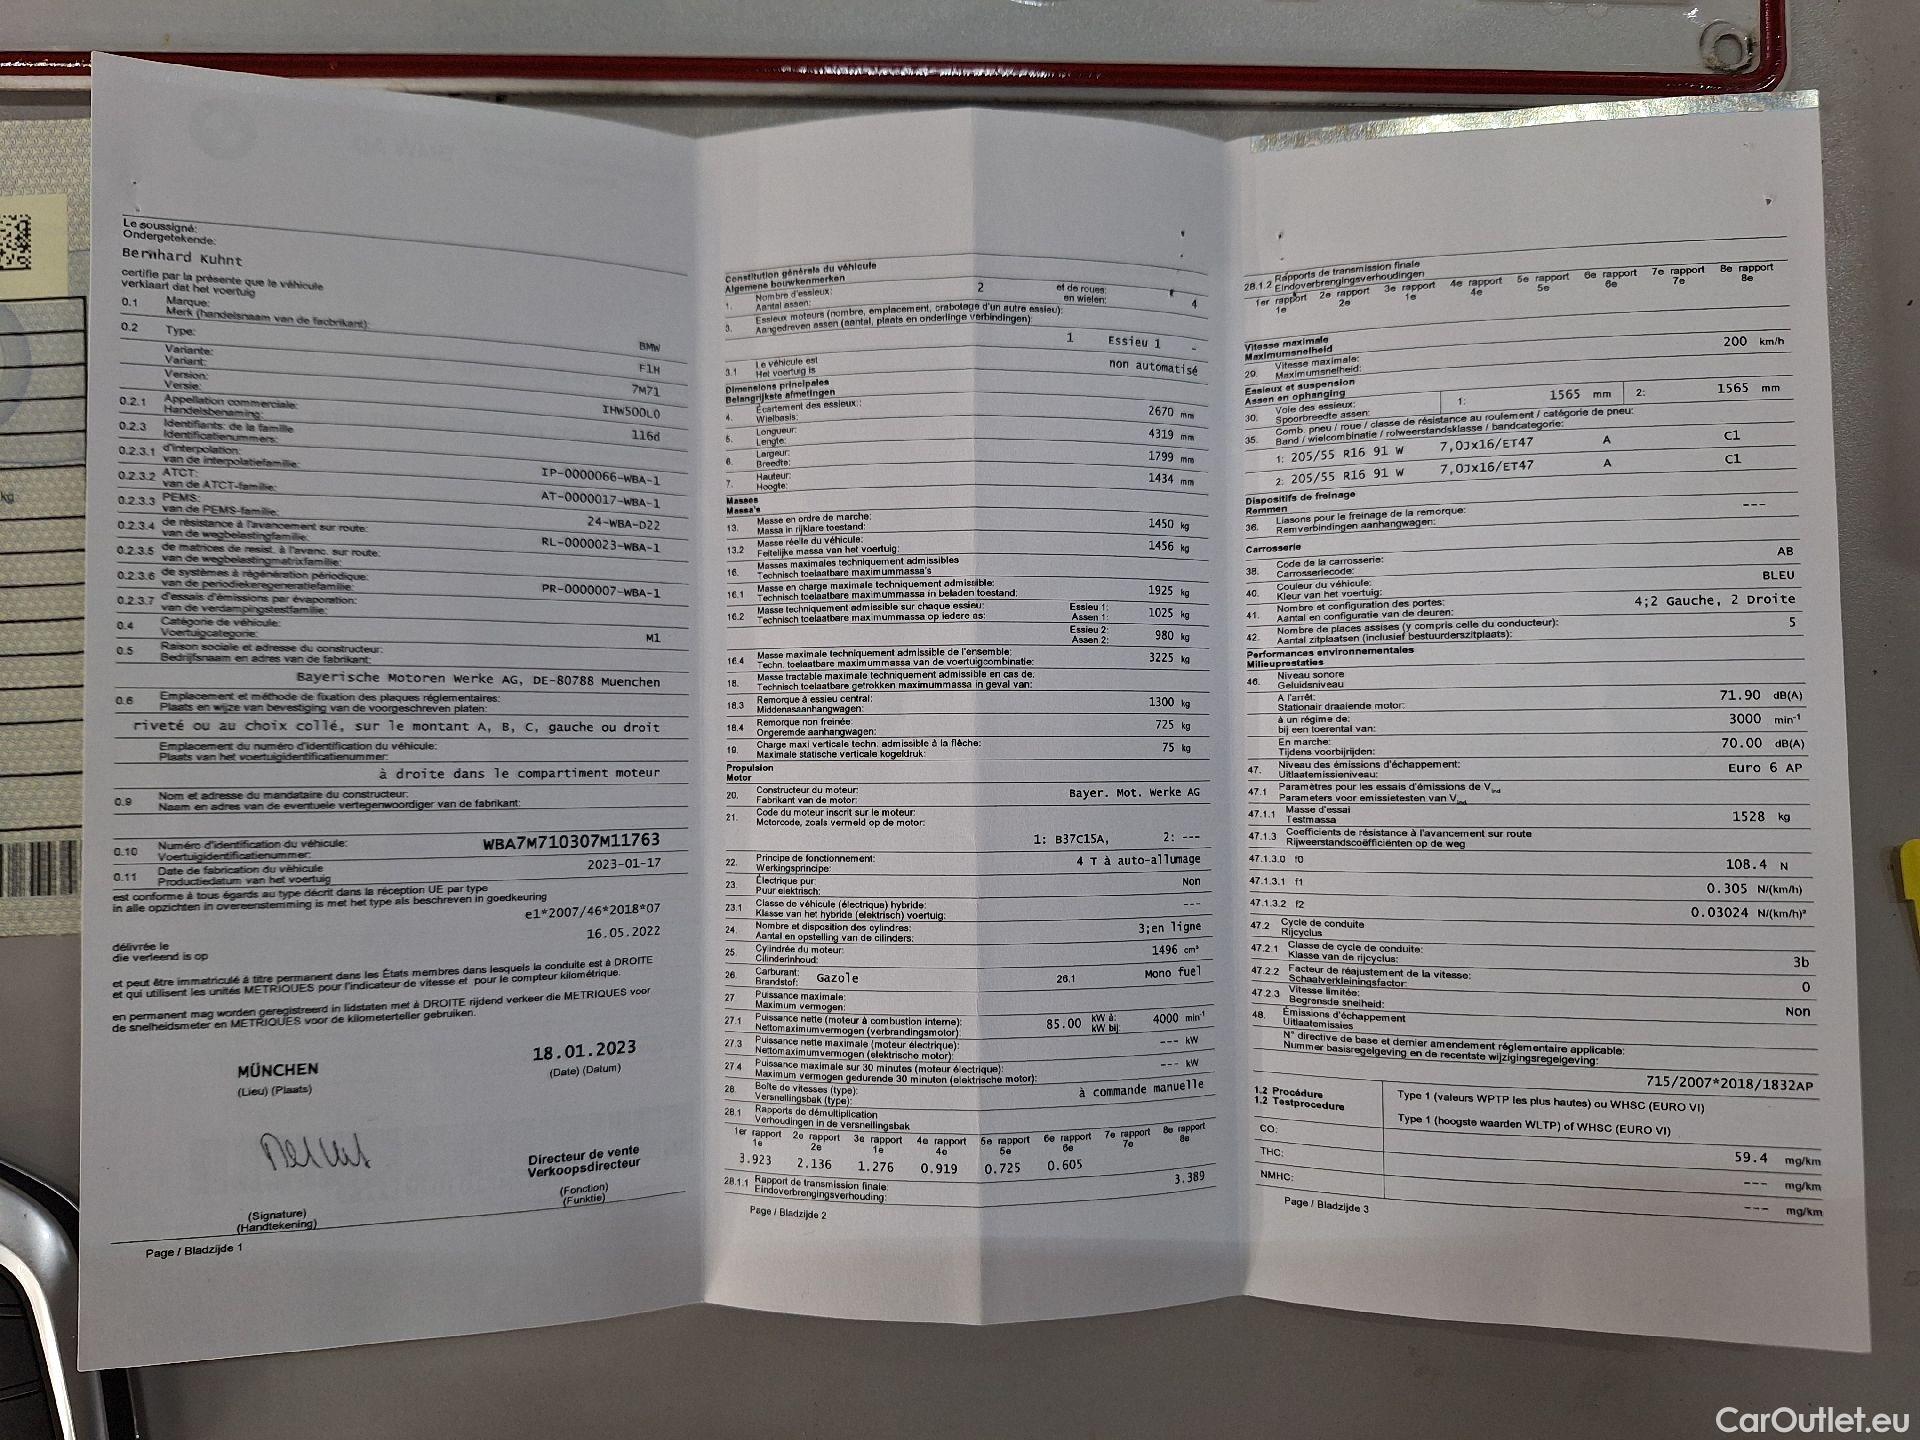 Le soussigné:
Ondergetekende:
Bernhard Kuhnt
certifie par la présente que le véhicule
verklaart dat het voertuig
0.1 Marque:
Merk (handelsnaam van de facbrikant):
BMW
0.2 Type:
F1H
Variante:
Variant:
7M71
Version:
Versie:
IHW500L0
0.2.1 Appellation commerciale:
Handelsbenaming:
116d
0.2.3 Identifiants: de la famille
Identificatienummers:
0.2.3.1 d'interpolation:
van de interpolatiefamilie:
IP-0000066-WBA-1
0.2.3.2 ATCT:
van de ATCT-familie:
AT-0000017-WBA-1
0.2.3.3 PEMS:
van de PEMS-familie:
24-WBA-D22
0.2.3.4 de résistance à l'avancement sur route:
van de wegbelastingfamilie:
RL-0000023-WBA-1
0.2.3.5 de matrices de resist. à l'avanc. sur route:
van de wegbelastingmatrixfamilie:
0.2.3.6 de systèmes à régénération périodique:
van de periodiekeregeneratiefamilie:
PR-0000007-WBA-1
0.2.3.7 d'essais d'émissions par évaporation:
van de verdampingstestfamilie:
0.4 Catégorie de véhicule:
Voertuigcategorie:
M1
0.5 Raison sociale et adresse du constructeur:
Bedrijfsnaam en adres van de fabrikant:
Bayerische Motoren Werke AG, DE-80788 Muenchen
0.6 Emplacement et méthode de fixation des plaques réglementaires:
Plaats en wijze van bevestiging van de voorgeschreven platen:
riveté ou au choix collé, sur le montant A, B, C, gauche ou droit
Emplacement du numéro d'identification du véhicule:
Plaats van het voertuigidentificatienummer:
à droite dans le compartiment moteur
0.9 Nom et adresse du mandataire du constructeur:
Naam en adres van de eventuele vertegenwoordiger van de fabrikant:
0.10 Numéro d'identification du véhicule:
Voertuigidentificatienummer:
WBA7M710307M11763
0.11 Date de fabrication du véhicule
Productiedatum van het voertuig
2023-01-17
est conforme à tous égards au type décrit dans la réception UE par type
in alle opzichten in overeenstemming is met het type als beschreven in goedkeuring
e1*2007/46*2018*07
délivrée le
die verleend is op
16.05.2022
et peut être immatriculé à titre permanent dans les États membres dans lesquels la conduite est à DROITE
et qui utilisent les unités METRIQUES pour l'indicateur de vitesse et pour le compteur kilométrique.
en permanent mag worden geregistreerd in lidstaten met à DROITE rijdend verkeer die METRIQUES voor
de snelheidsmeter en METRIQUES voor de kilometerteller gebruiken.
MÜNCHEN
(Lieu) (Plaats)
18.01.2023
(Date) (Datum)
(Signature)
(Handtekening)
Directeur de vente
Verkoopsdirecteur
(Fonction)
(Funktie)
Page / Bladzijde 1
Constitution générale du véhicule
Algemene bouwkenmerken
1. Nombre d'essieux:
Aantal assen:
2
et de roues:
en wielen:
4
3. Essieux moteurs (nombre, emplacement, crabotage d'un autre essieu):
Aangedreven assen (aantal, plaats en onderlinge verbindingen):
1 Essieu 1 -
3.1 Le véhicule est
Het voertuig is
non automatisé
Dimensions principales
Belangrijkste afmetingen
4. Écartement des essieux:
Wielbasis:
2670 mm
5. Longueur:
Lengte:
4319 mm
6. Largeur:
Breedte:
1799 mm
7. Hauteur:
Hoogte:
1434 mm
Masses
Massa's
13. Masse en ordre de marche:
Massa in rijklare toestand:
1450 kg
13.2 Masse réelle du véhicule:
Feitelijke massa van het voertuig:
1456 kg
16. Masses maximales techniquement admissibles
Technisch toelaatbare maximummassa's
16.1 Masse en charge maximale techniquement admissible:
Technisch toelaatbare maximummassa in beladen toestand:
1925 kg
16.2 Masse techniquement admissible sur chaque essieu:
Technisch toelaatbare maximummassa op iedere as:
Essieu 1:
Assen 1:
1025 kg
Essieu 2:
Assen 2:
980 kg
16.4 Masse maximale techniquement admissible de l'ensemble:
Techn. toelaatbare maximummassa van de voertuigcombinatie:
3225 kg
18. Masse tractable maximale techniquement admissible en cas de:
Technisch toelaatbare getrokken maximummassa in geval van:
18.3 Remorque à essieu central:
Middenasaanhangwagen:
1300 kg
18.4 Remorque non freinée:
Ongeremde aanhangwagen:
725 kg
19. Charge maxi verticale techn. admissible à la flèche:
Maximale statische verticale kogeldruk:
75 kg
Propulsion
Motor
20. Constructeur du moteur:
Fabrikant van de motor:
Bayer. Mot. Werke AG
21. Code du moteur inscrit sur le moteur:
Motorcode, zoals vermeld op de motor:
1: B37C15A, 2: ---
22. Principe de fonctionnement:
Werkingsprincipe:
4 T à auto-allumage
23. Électrique pur:
Puur elektrisch:
Non
23.1 Classe de véhicule (électrique) hybride:
Klasse van het hybride (elektrisch) voertuig:
---
24. Nombre et disposition des cylindres:
Aantal en opstelling van de cilinders:
3;en ligne
25. Cylindrée du moteur:
Cilinderinhoud:
1496 cm³
26. Carburant:
Brandstof:
Gazole
26.1 Mono fuel
27 Puissance maximale:
Maximum vermogen:
27.1 Puissance nette (moteur à combustion interne):
Nettomaximumvermogen (verbrandingsmotor):
85.00 kW à:
kW bij:
4000 min-1
27.3 Puissance nette maximale (moteur électrique):
Nettomaximumvermogen (elektrische motor):
--- kW
27.4 Puissance maximale sur 30 minutes (moteur électrique):
Maximum vermogen gedurende 30 minuten (elektrische motor):
--- kW
28. Boîte de vitesses (type):
Versnellingsbak (type):
à commande manuelle
28.1 Rapports de démultiplication
Verhoudingen in de versnellingsbak
1er rapport 2e rapport 3e rapport 4e rapport 5e rapport 6e rapport 7e rapport 8e rapport
1e 2e 1e 4e 5e 6e 7e 8e
3.923 2.136 1.276 0.919 0.725 0.605
28.1.1 Rapport de transmission finale:
Eindoverbrengingsverhouding:
3.389
Page / Bladzijde 2
28.1.2 Rapports de transmission finale
Eindoverbrengingsverhoudingen
1er rapport 2e rapport 3e rapport 4e rapport 5e rapport 6e rapport 7e rapport 8e rapport
1e 2e 1e 4e 5e 6e 7e 8e
Vitesse maximale
Maximumsnelheid
29. Vitesse maximale:
Maximumsnelheid:
200 km/h
Essieux et suspension
Assen en ophanging
30. Voie des essieux:
Spoorbreedte assen:
1: 1565 mm 2: 1565 mm
35. Comb. pneu / roue / classe de résistance au roulement / catégorie de pneu:
Band / wielcombinatie / rolweerstandsklasse / bandcategorie:
1: 205/55 R16 91 W 7,0Jx16/ET47 A C1
2: 205/55 R16 91 W 7,0Jx16/ET47 A C1
Dispositifs de freinage
Remmen
36. Liasons pour le freinage de la remorque:
Remverbindingen aanhangwagen:
---
Carrosserie
38. Code de la carrosserie:
Carrosseriecode:
AB
40. Couleur du véhicule:
Kleur van het voertuig:
BLEU
41. Nombre et configuration des portes:
Aantal en configuratie van de deuren:
4;2 Gauche, 2 Droite
42. Nombre de places assises (y compris celle du conducteur):
Aantal zitplaatsen (inclusief bestuurderszitplaats):
5
Performances environnementales
Milieuprestaties
46. Niveau sonore
Geluidsniveau
A l'arrêt:
Stationair draaiende motor:
71.90 dB(A)
à un régime de:
bij een toerental van:
3000 min-1
En marche:
Tijdens voorbijrijden:
70.00 dB(A)
47. Niveau des émissions d'échappement:
Uitlaatemissieniveau:
Euro 6 AP
47.1 Paramètres pour les essais d'émissions de Vind
Parameters voor emissietesten van Vind
47.1.1 Masse d'essai
Testmassa
1528 kg
47.1.3 Coefficients de résistance à l'avancement sur route
Rijweerstandscoëfficiënten op de weg
47.1.3.0 f0 108.4 N
47.1.3.1 f1 0.305 N/(km/h)
47.1.3.2 f2 0.03024 N/(km/h)²
47.2 Cycle de conduite
Rijcyclus
47.2.1 Classe de cycle de conduite:
Klasse van de rijcyclus:
3b
47.2.2 Facteur de réajustement de la vitesse:
Schaalverkleiningsfactor:
0
47.2.3 Vitesse limitée:
Begrensde snelheid:
Non
48. Émissions d'échappement
Uitlaatemissies
N° directive de base et dernier amendement réglementaire applicable:
Nummer basisregelgeving en de recentste wijzigingsregelgeving:
715/2007*2018/1832AP
1.2 Procédure
1.2 Testprocedure
Type 1 (valeurs WPTP les plus hautes) ou WHSC (EURO VI)
Type 1 (hoogste waarden WLTP) of WHSC (EURO VI)
CO: 59.4 mg/km
THC: --- mg/km
NMHC: --- mg/km
Page / Bladzijde 3
kg
CarOutlet.eu